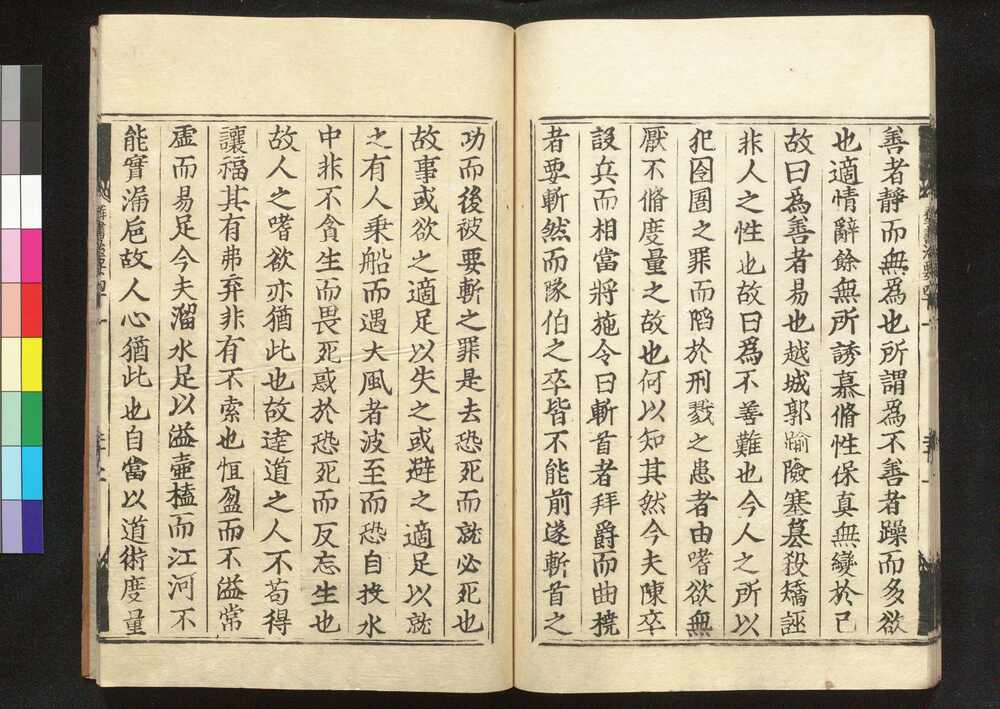 善者靜而無爲也所謂爲不善者躁而多欲
也適情辭餘無所誘慕脩性保真無變於己
故曰爲善者易也越城郭踰險塞篡殺矯誣
非人之性也故曰爲不善難也今人之所以
犯囹圄之罪而陷於刑戮之患者由嗜欲無
厭不脩度量之故也何以知其然今夫陳卒
設兵而相當將施令曰斬首者拜爵而曲撓
者要斬然而隊伯之卒皆不能前遂斬首之
功而後被要斬之罪是去恐死而就必死也
故事或欲之適足以失之或避之適足以就
之有人乘船而遇大風者波至而恐自投水
中非不貪生而畏死惑於恐死而反忘生也
故人之嗜欲亦猶此也故達道之人不苟得
讓福其有弗弃非有不索也恒盈而不溢常
虛而易足今夫溜水足以溢壺榼而江河不
能實漏巵故人心猶此也自當以道術度量
群書治要四十一